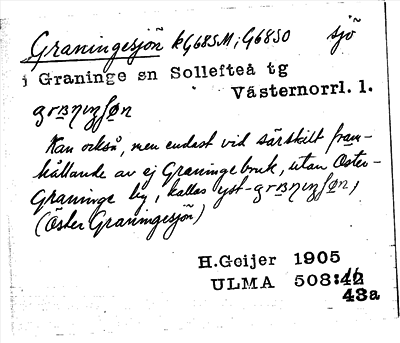 Graningesjön kG68SM; G68SO sjö
i Graninge sn Sollefteå tg
Västernorrl. l.
Kan också, men endast vid särskilt fram-
hållande av ej Graningebruk, utan Öster-
Graninge by, kallas
(Öster Graningesjön)
H.Geijer 1905
ULMA 508:
43a